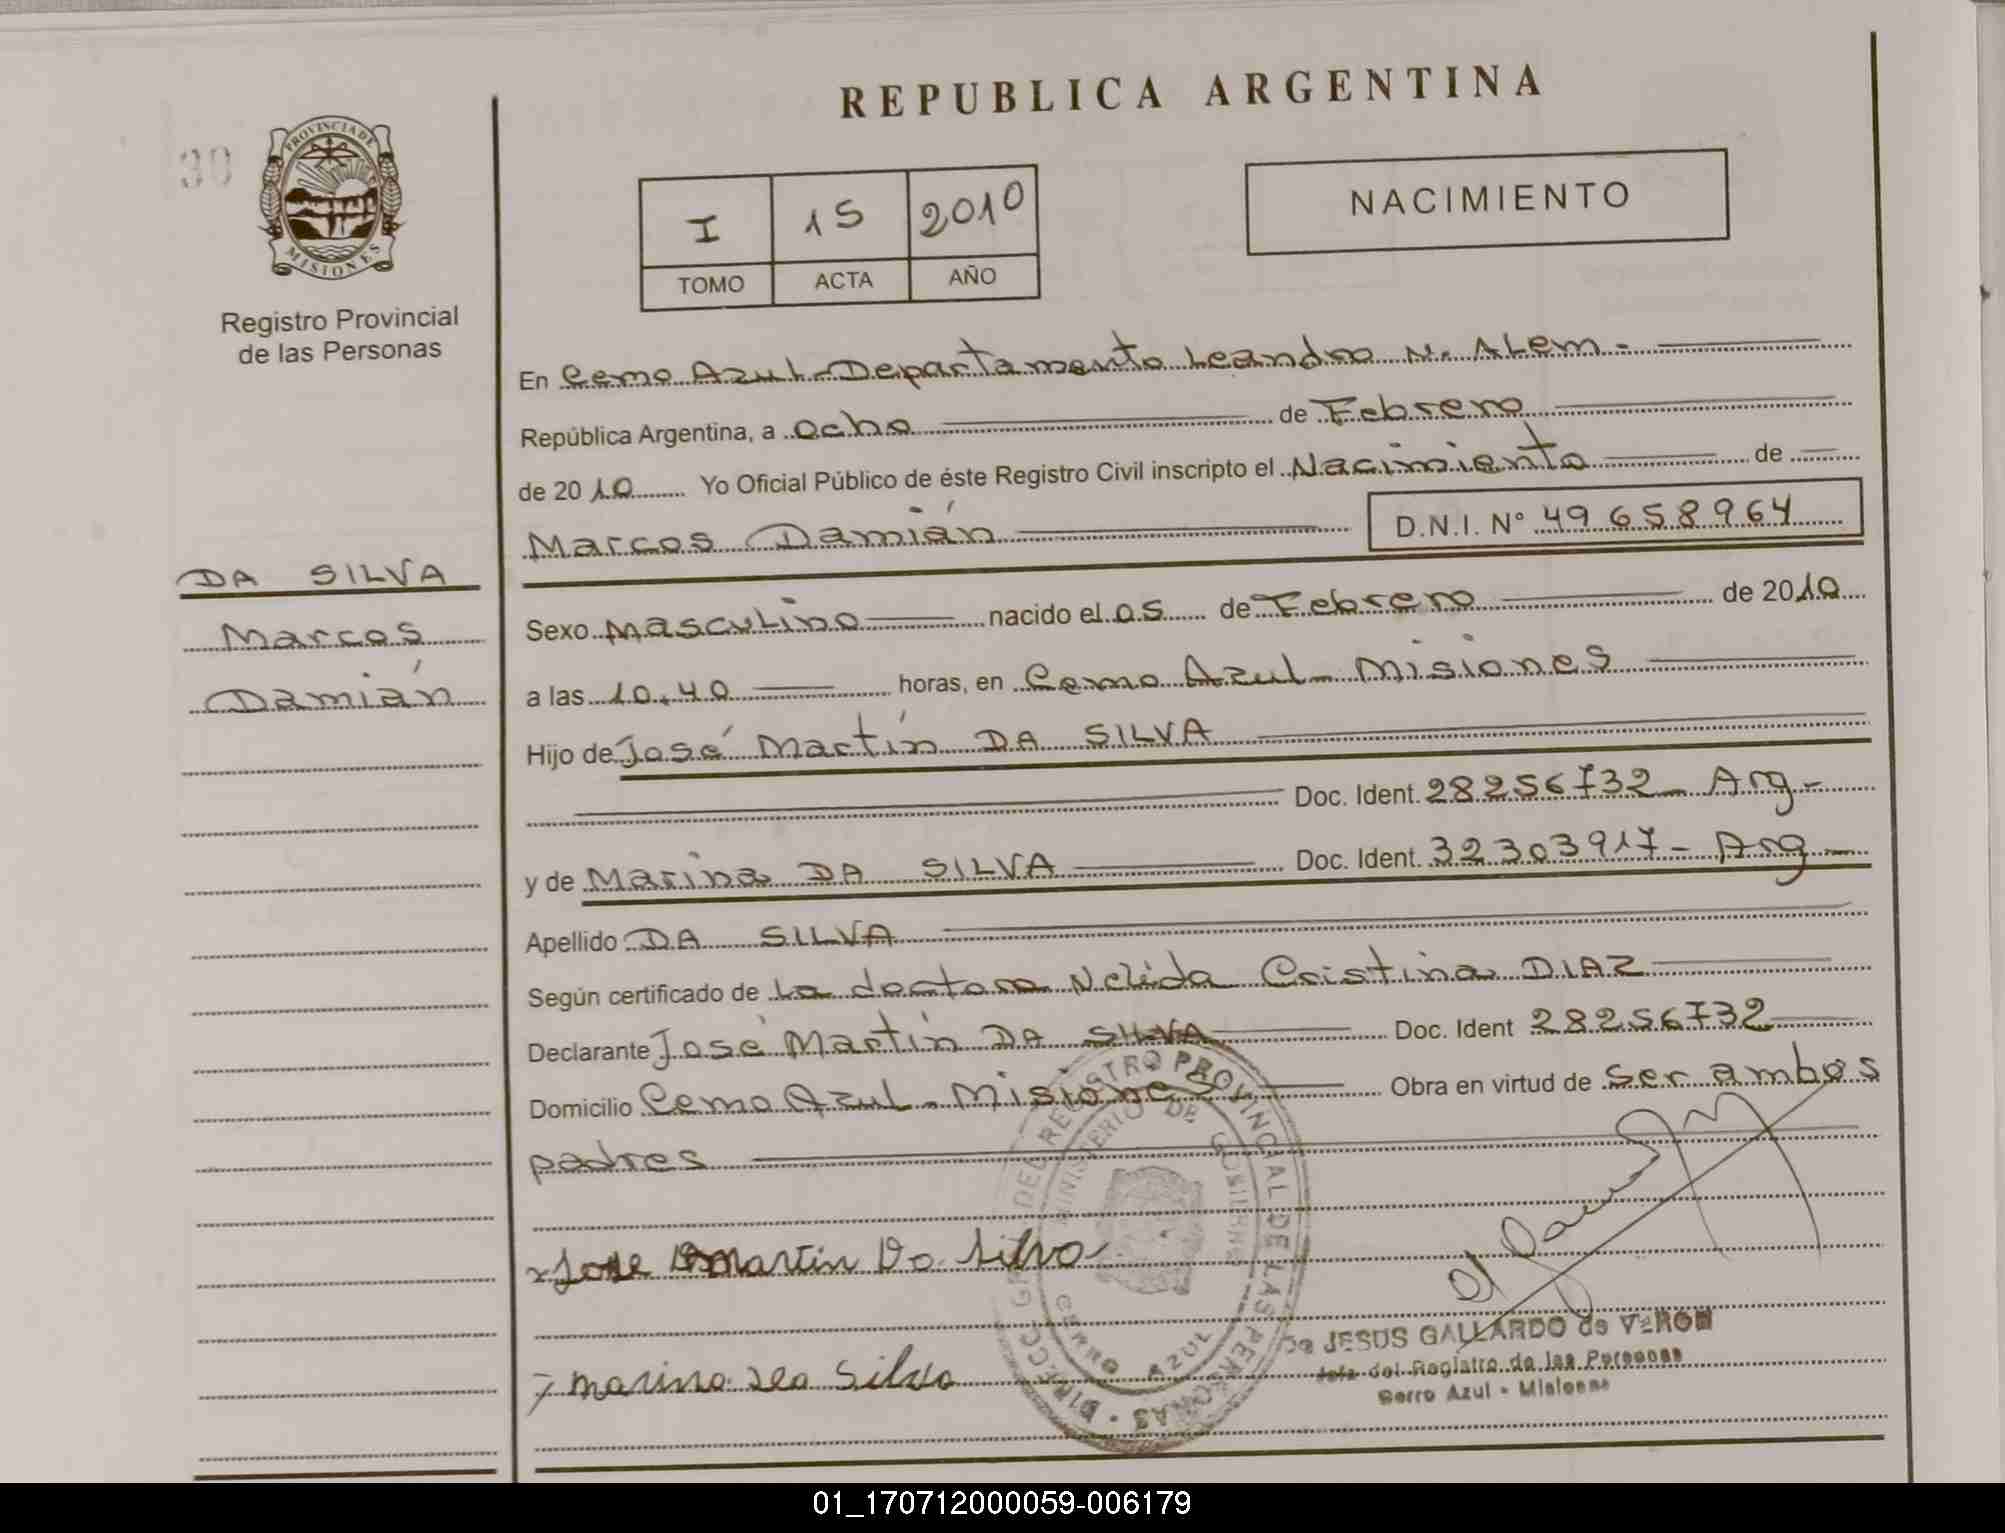 REPUBLICA ARGENTINA
30
PROVINCIA DE
MISIONES
Registro Provincial
de las Personas
I 15 2010
TOMO ACTA AÑO
NACIMIENTO
DA SILVA
Marcos
Damián
En Cerro Azul-Departamento Leandro N. ALem.-
República Argentina, a ocho de Febrero
de 2010 Yo Oficial Público de éste Registro Civil inscripto el Nacimiento de
Marcos Damián D.N.I. Nº 49 658964
Sexo masculino nacido el 05 de Febrero de 2010
a las 10.40 horas, en Cerro Azul- Misiones
Hijo de José Martín DA SILVA
Doc. Ident. 28256732- Arg-
y de Marina DA SILVA Doc. Ident. 32303917- Arg-
Apellido DA SILVA
Según certificado de La doctora Nélida Cristina DIAZ
Declarante José Martín DA SILVA Doc. Ident 28256732
Domicilio Cerro Azul- Misiones Obra en virtud de ser ambos
padres
Jose Martin Da Silva
Marina da Silva
DIRECC. GRAL DEL REGISTRO PROVINCIAL DE LAS PERSONAS
MINISTERIO DE GOBIERNO
CERRO AZUL
de JESUS GALLARDO de VERON
Jefe del Registro de las Personas
Cerro Azul - Misiones
01_170712000059-006179